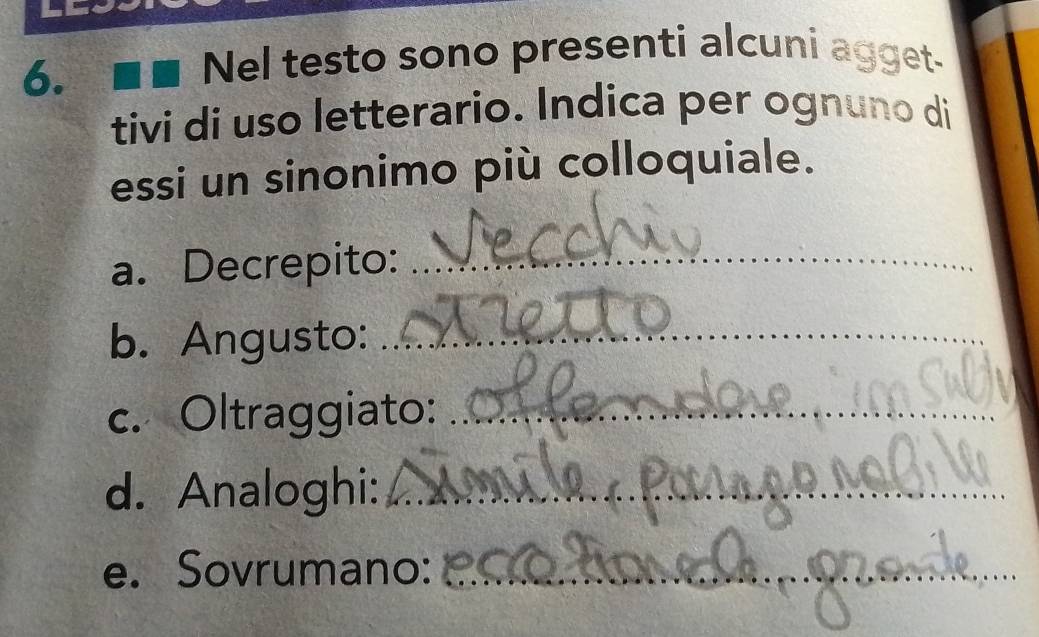 6. Nel testo sono presenti alcuni agget-
tivi di uso letterario. Indica per ognuno di
essi un sinonimo più colloquiale.
a. Decrepito: Vecchio
b. Angusto: stretto
c. Oltraggiato: offendere,
d. Analoghi: simile, paragonabile
e. Sovrumano: eccezionale, grande